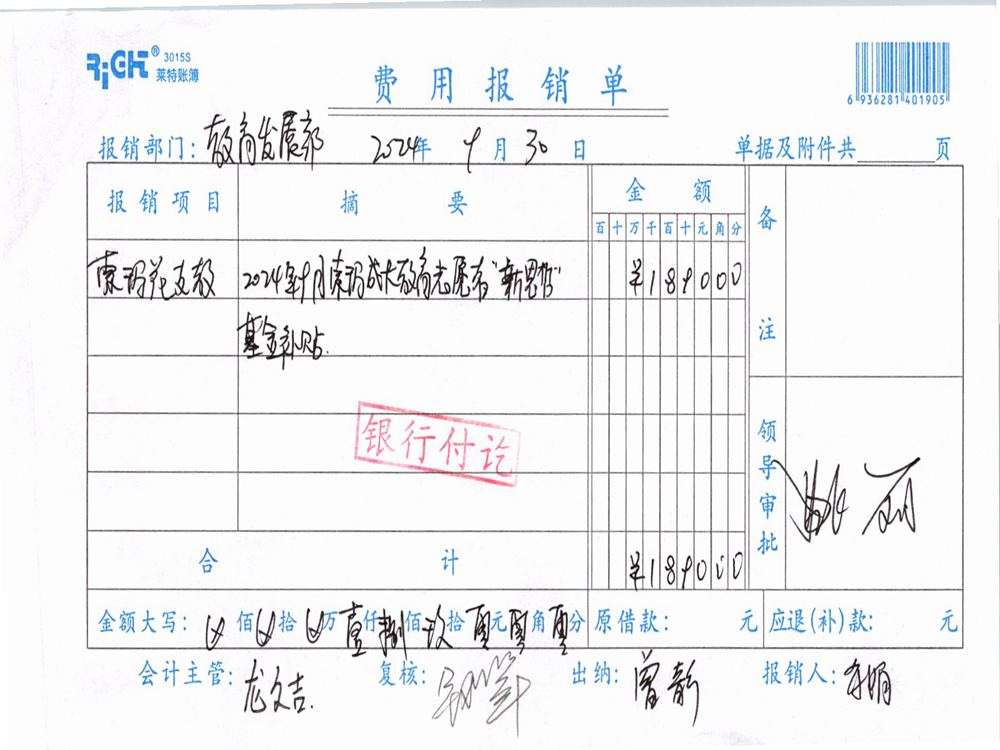 RiGHT® 3015S
莱特账簿
费用报销单
6 936281 401905
报销部门：教育发展部 2024年 9月 30日 单据及附件共 页
报销项目 摘要 金额 备注
百十万千百十元角分
索玛花支教 2024年9月索玛成大教育志愿者"新思哲" ¥189000
基金补贴.
银行付讫
领导审批
合计 ¥189000
金额大写： 佰 拾 万壹仟捌佰玖拾 元 角 分 原借款： 元 应退(补)款： 元
会计主管：龙文吉. 复核： 出纳：曾静 报销人：